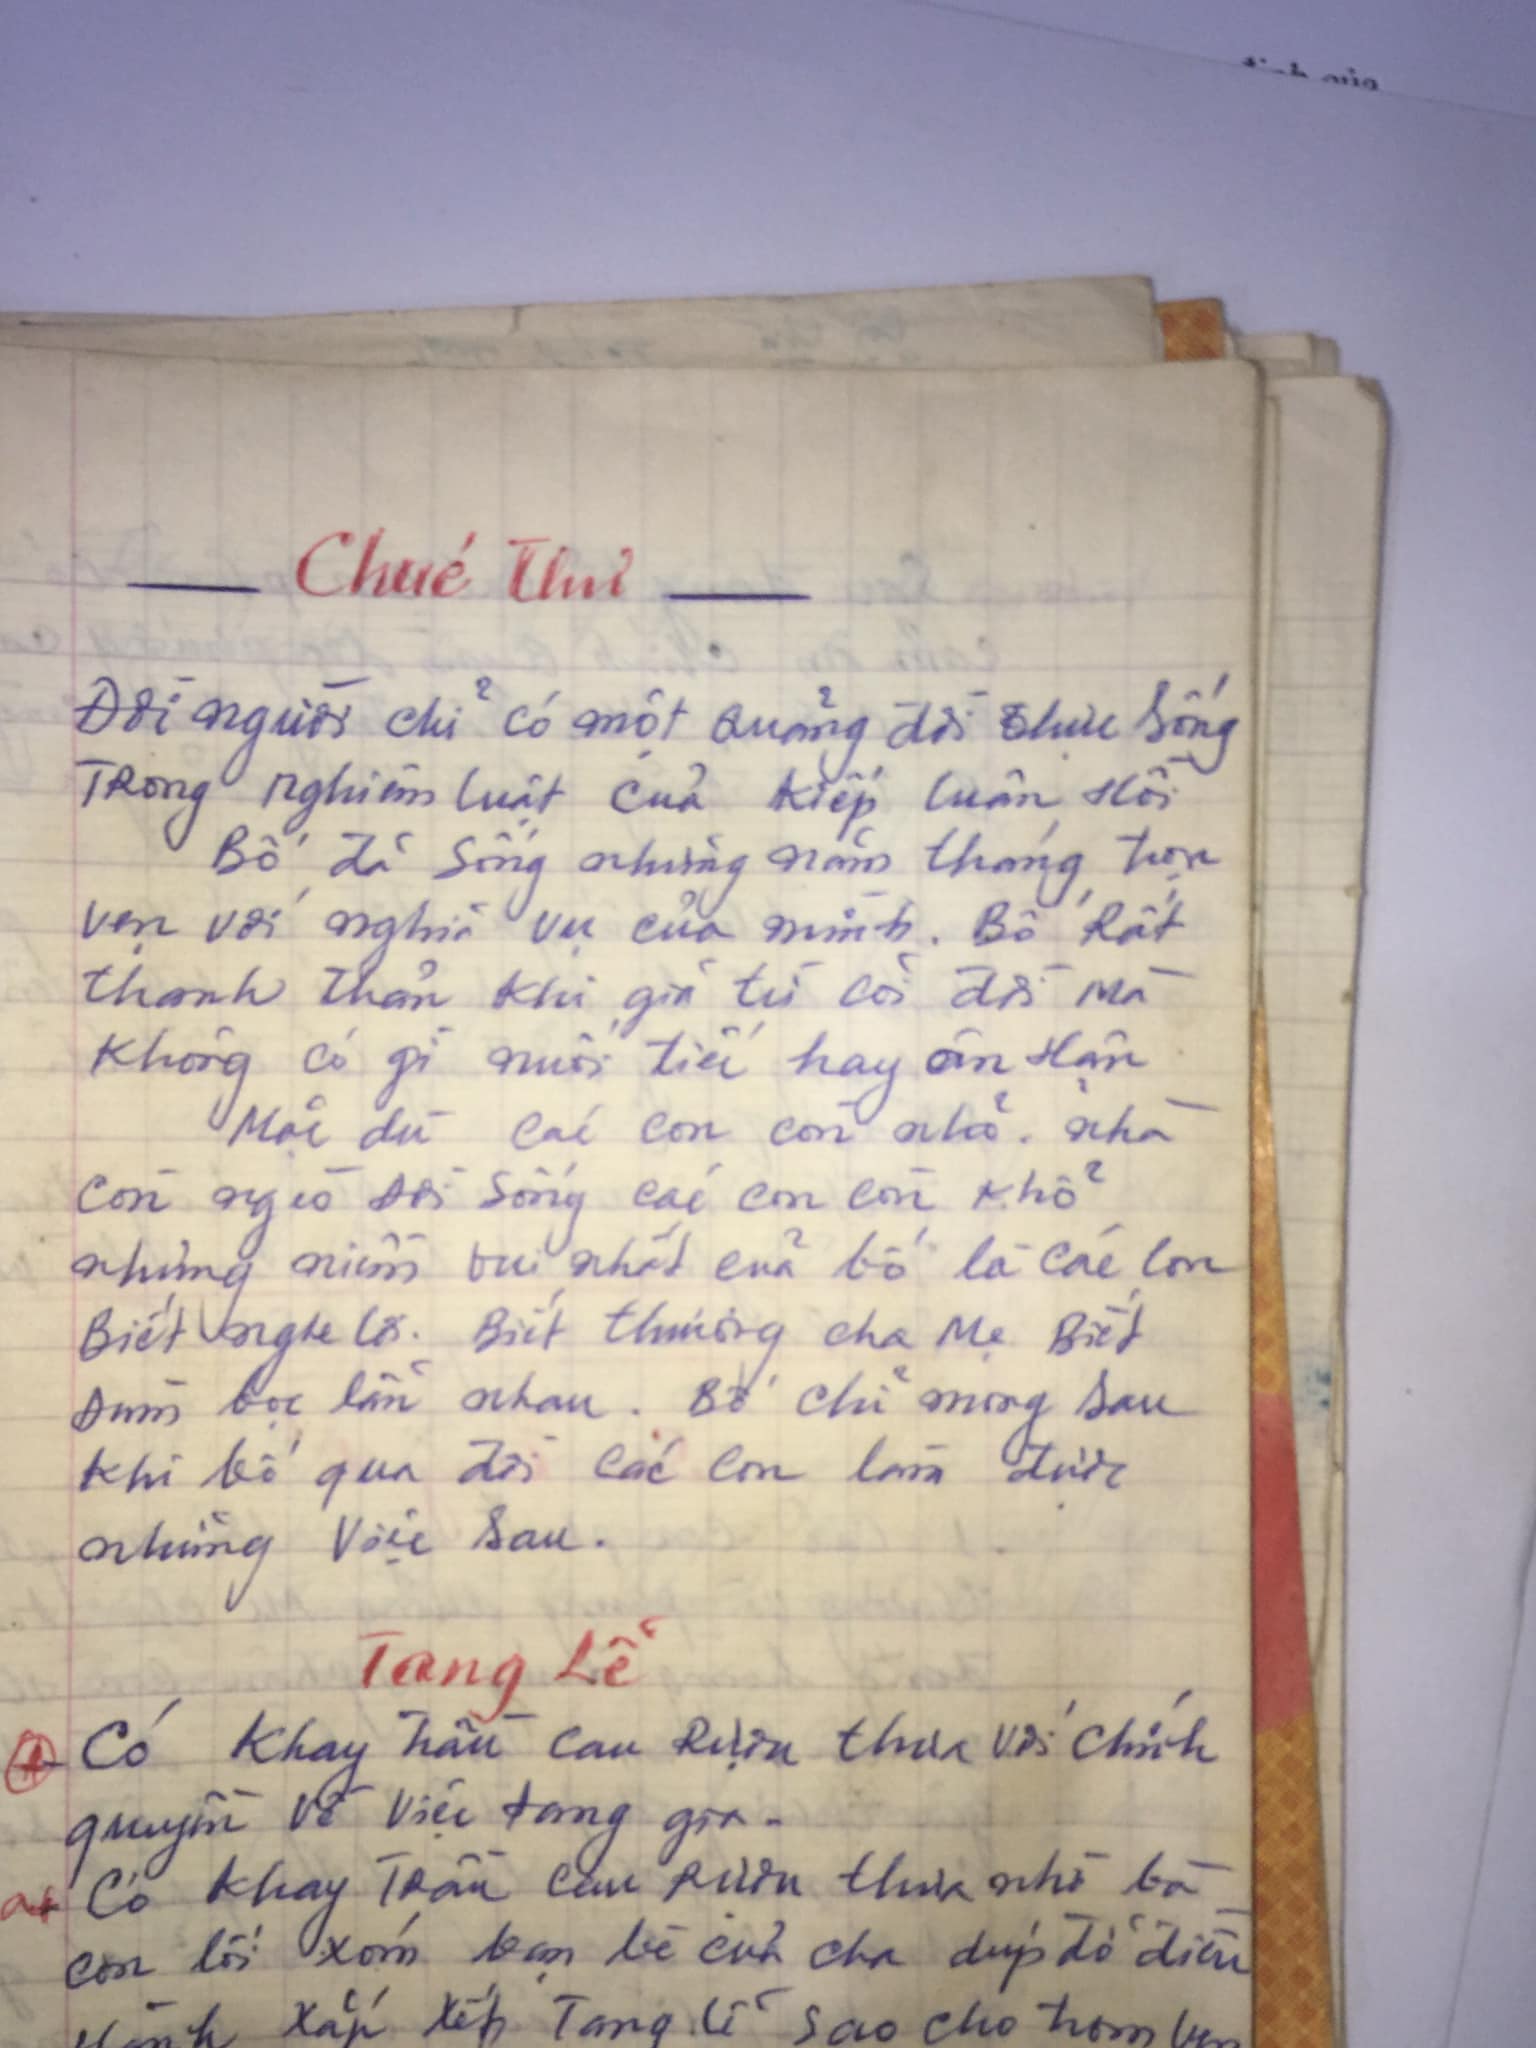 Chúc Thư
Đời người chỉ có một quảng đời thực sống
Trong nghiêm luật của kiếp luân hồi
Bố đã sống những năm tháng trọn
vẹn với nghĩa vụ của mình. Bố rất
thanh thản khi giã từ cõi đời mà
không có gì nuối tiếc hay ân hận
Mặc dù các con còn nhỏ. nhà
còn ngèo đời sống các con còn khổ
nhưng niềm vui nhất của bố là các con
Biết nghe lời. Biết thương cha mẹ Biết
đùm bọc lẫn nhau. Bố chỉ mong sau
khi bố qua đời các con làm được
những việc sau.
Tang Lễ
Có khay trầu cau rượu thưa với chính
quyền về việc tang gia.
Có khay trầu cau rượu thưa nhờ bà
con lối xóm bạn bè của cha dúp đỡ điều
hành xắp xếp Tang lễ sao cho trom vẹn